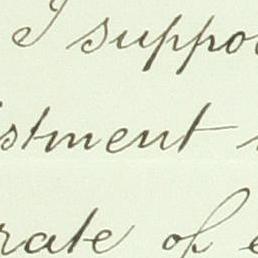 I suppo
stment
rate of